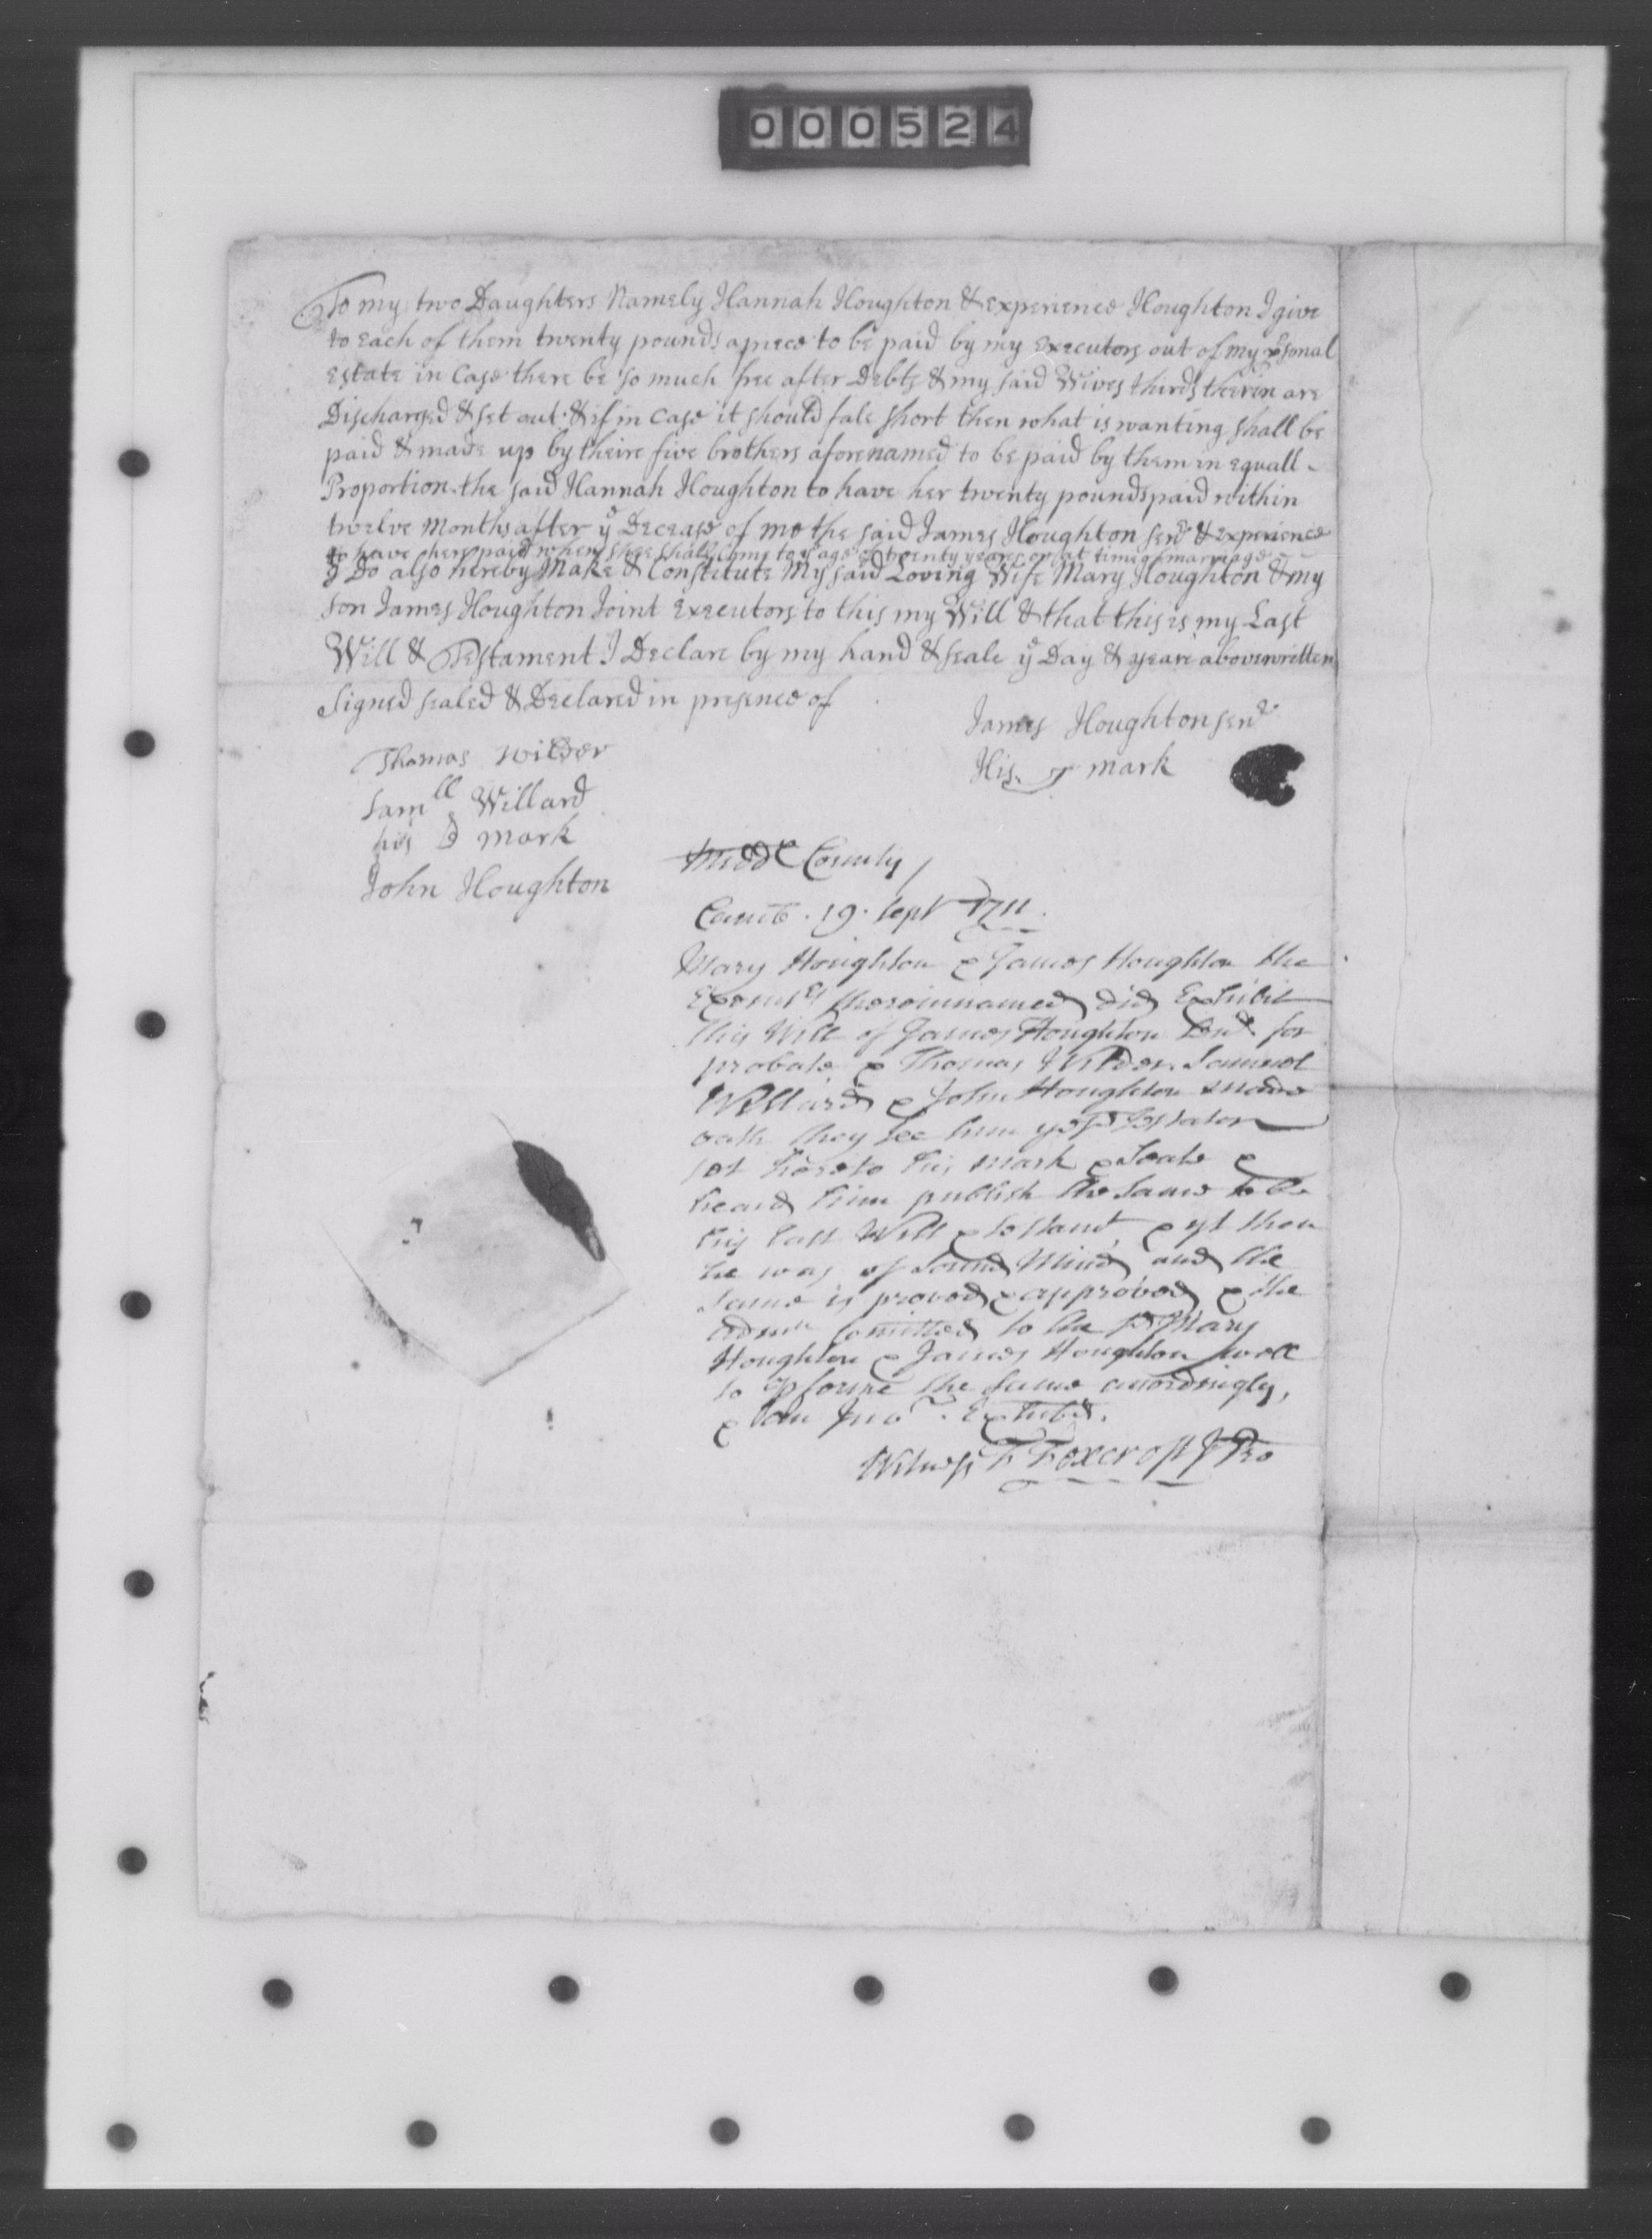 000524
To my two Daughters Namely Hannah Houghton & Experience Houghton I give
to Each of them twenty pounds apiece to be paid by my Executors out of my psonal
Estate in Case there be so much free after Debts & my said Wives thirds therein are
Discharged & set out & if in Case it should fale short then what is wanting shall be
paid & made up by theire five brothers aforenamed to be paid by them in equall
Proportion the said Hannah Houghton to have her twenty pounds paid within
twelve Months after ye Decease of me the said James Houghton senr & Experience
to have hers paid when shee shall Come to ye age of twenty yeares or at time of marriage
I Do also hereby Make & Constitute My said Loving Wife Mary Houghton & my
son James Houghton Joint Executors to this my Will & that this is my Last
Will & Testament I Declare by my hand & seale ye Day & yeare abovewritten
Signed sealed & Declared in presence of
James Houghton senr
His mark
Thomas Wilder
Samll Willard
his mark
John Houghton
Midd County
Camb. 19. Sept 1711.
Mary Houghton & James Houghton the
thereinnamed did Exhibit
this Will of James Houghton for
probate & Thomas Wilder Samuel
Willard & John Houghton made
oath they see him ye sd Testator
set hereto his mark & Seale &
heard him publish the same to be
his last Will & Testamt, & yt then
he was of Sound Mind and the
same is proved & approved & the
Admn Comitted to the sd Mary
Houghton & James Houghton well
to pforme the same accordingly,
Witness F Foxcroft J Pro